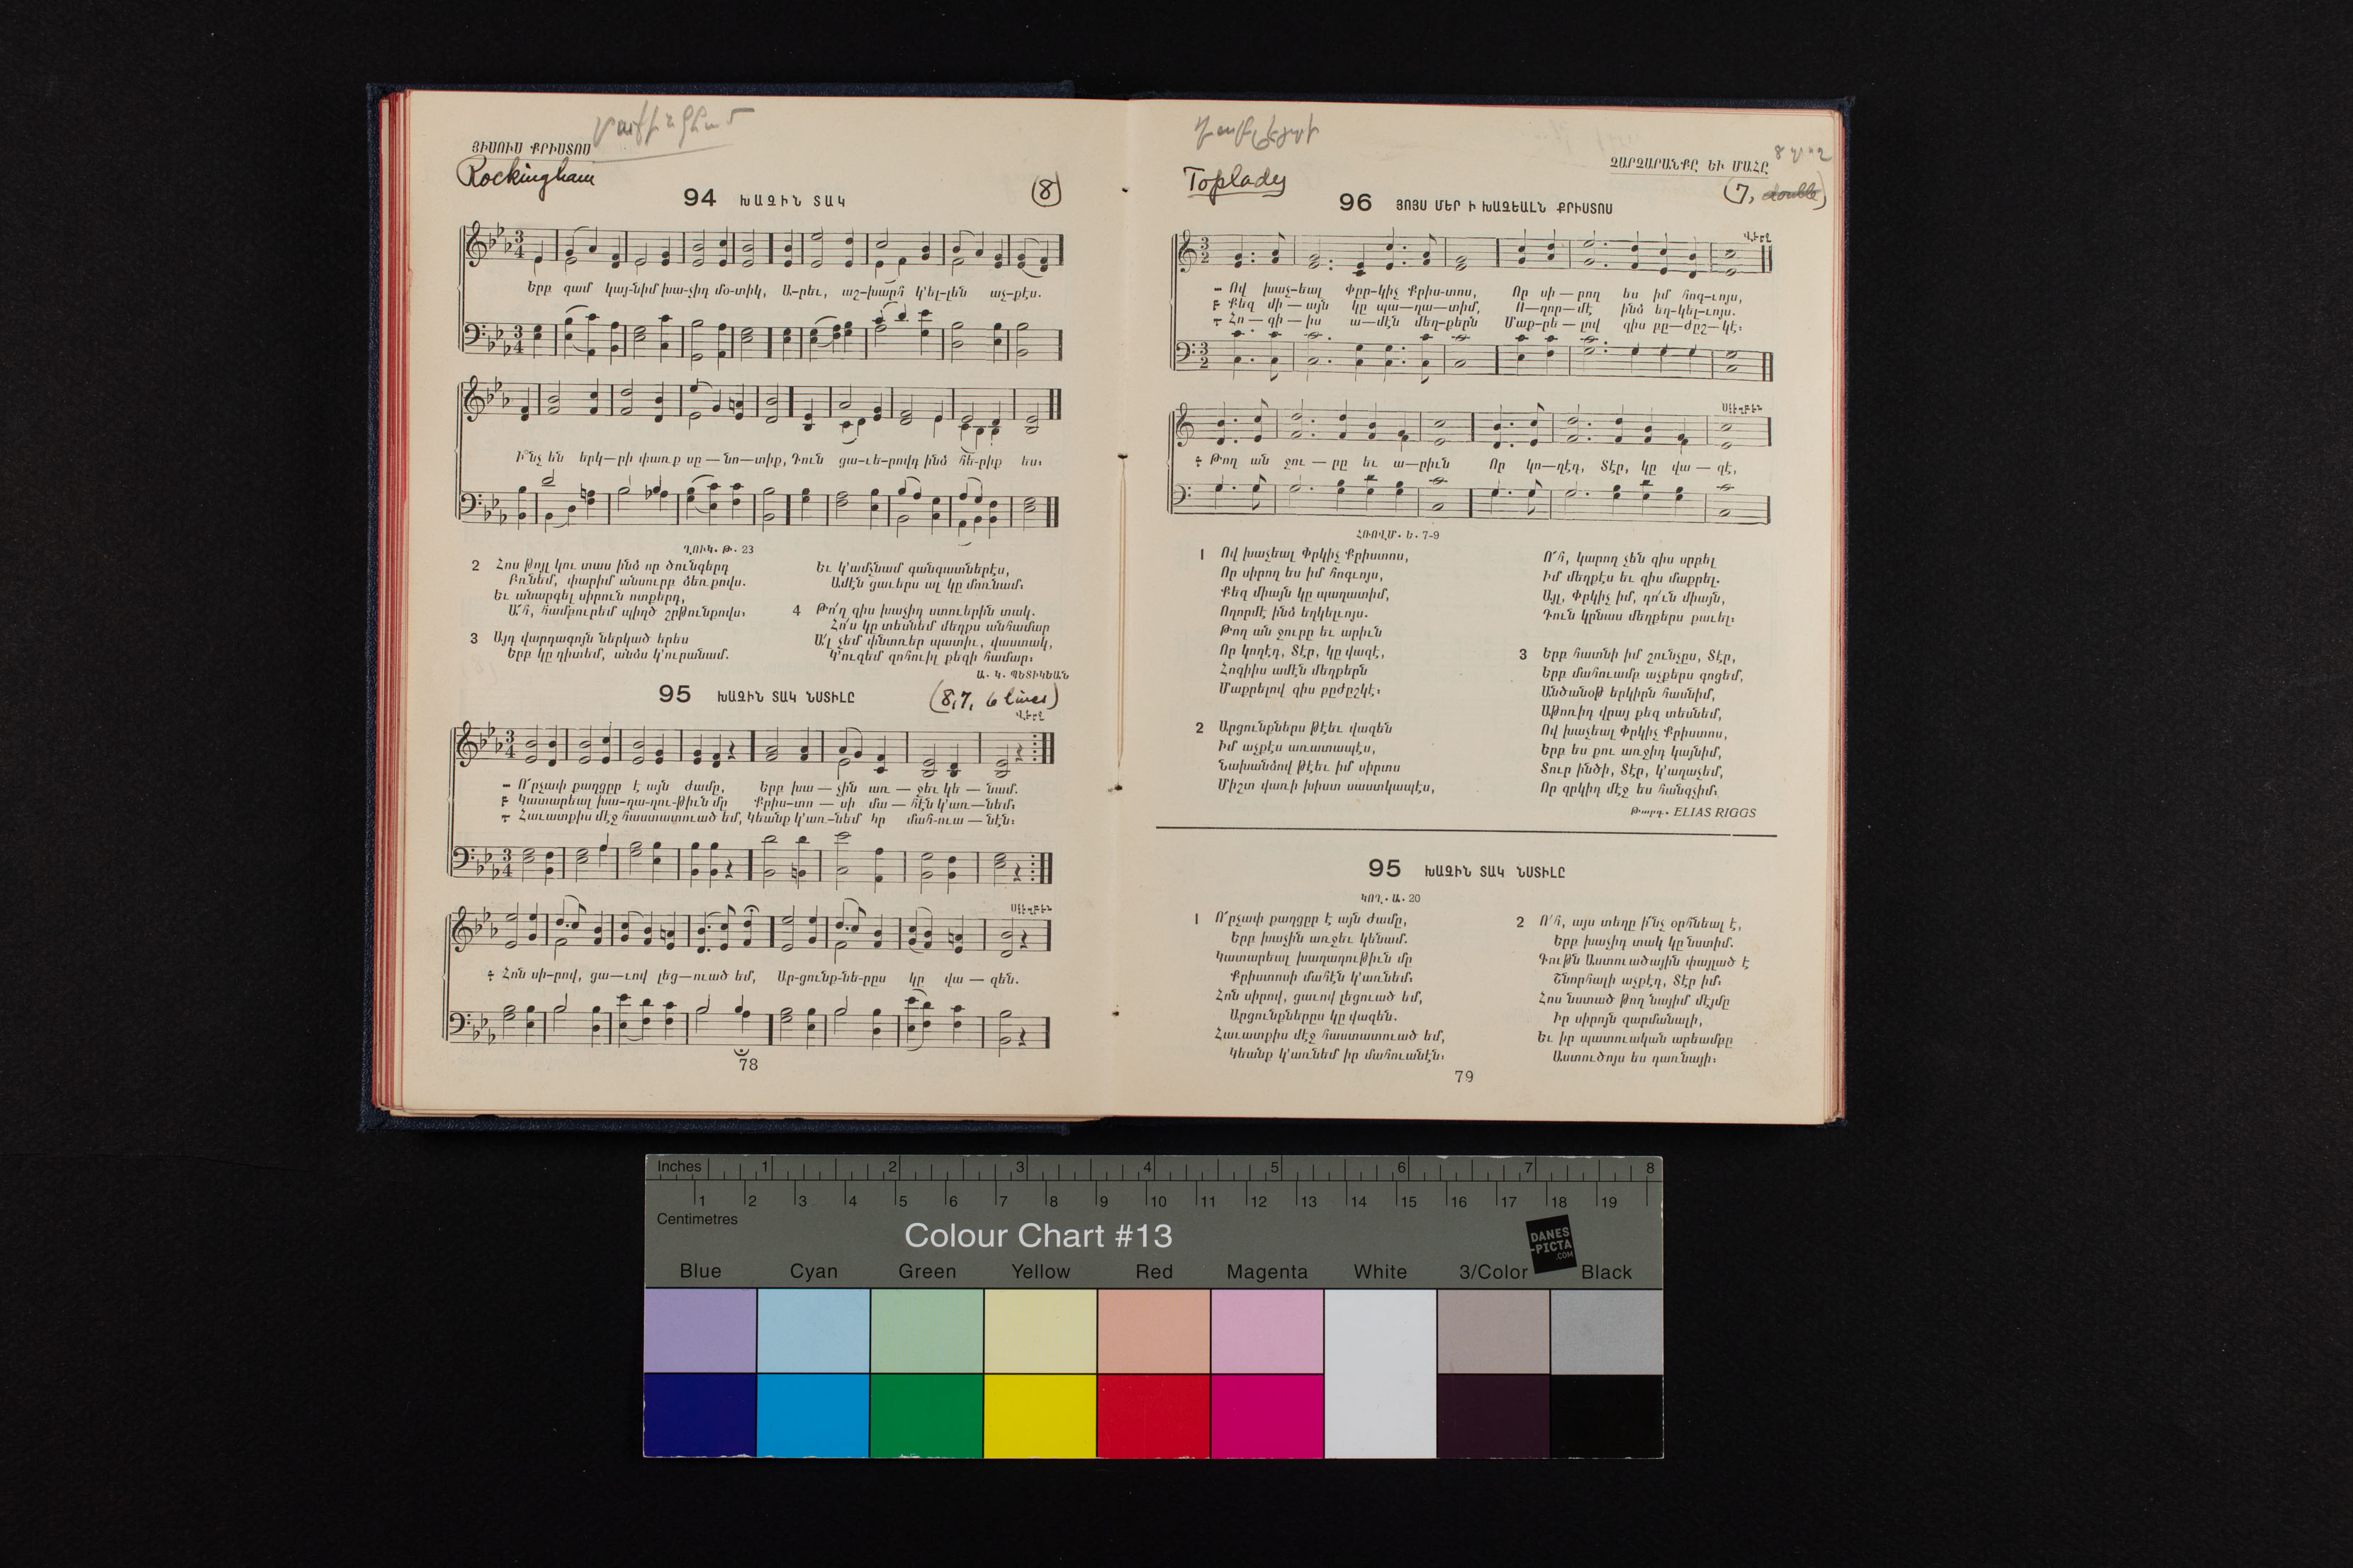 ՅԻՍՈՒՍ ՔՐԻՍՏՈՍ
Rockingham
94 ԽԱՉԻՆ ՏԱԿ
(8)
Երբ գամ կայ-նիմ խա-չիդ մօ-տիկ, Ա-րեւ, աշ-խարհ կ'ել-լեն աչ-քէս.
Ի՞նչ են երկ—րի փառք սը — նո—տիք, Դուն ցա-ւե-րովդ ինձ հե-րիք ես։
ՂՈՒԿ. Թ. 23
2 Հոս թոյլ կու տաս ինձ որ ծունգերդ
Բռնեմ, փարիմ անսուրբ ձեռքովս.
Եւ անարգել սիրուն ոտքերդ,
Ա՛հ, համբուրեմ պիղծ շրթունքովս։
3 Այդ վարդագոյն ներկած երես
Երբ կը դիտեմ, անձս կ'ուրանամ.
Եւ կ'ամչնամ գանգատներէս,
Ամէն ցաւերս ալ կը մոռնամ։
4 Թո՛ղ զիս խաչիդ ստուերին տակ.
Հո՛ս կը տեսնեմ մեղքս անհամար
Ա՛լ չեմ փնտռեր պատիւ, վաստակ,
Կ'ուզեմ զոհուիլ քեզի համար։
Ա. Կ. ՊԵՏԻԿԵԱՆ
95 ԽԱՉԻՆ ՏԱԿ ՆՍՏԻԼԸ
(8,7, 6 lines)
Վերջ
Ո՜րչափ քաղցըր է այն ժամը, Երբ խա — չին առ — ջեւ կե — նամ.
Կատարեալ խա-ղա-ղու-թիւն մը Քրիս-տո — սի մա — հէն կ'առ—նեմ։
Հաւատքիս մէջ հաստատուած եմ, Կեանք կ'առ-նեմ իր մահ-ուա — նէն։
Սէեղբեն
Հոն սի-րով, ցա—ւով լեց—ուած եմ, Ար-ցունք-նե-րըս կը վա — զեն.
78
Toplady
ՉԱՐՉԱՐԱՆՔԸ ԵՒ ՄԱՀԸ
(7, double)
96 ՅՈՅՍ ՄԵՐ Ի ԽԱՉԵԱԼՆ ՔՐԻՍՏՈՍ
Վերջ
Ով խաչ-եալ Փըր-կիչ Քրիս-տոս, Որ սի — րող ես իմ հոգ-ւոյս,
Քեզ մի — այն կը պա—ղա—տիմ, Ո—ղոր—մէ ինձ եղ-կել-ւոյս.
Հո — գի — իս ա—մէն մեղ-քերն Մաք-րե — լով զիս բը—ժըշ—կէ։
Թող ան ջու — րը եւ ա—րիւն Որ կո—ղէդ, Տէր, կը վա — զէ,
ՀՌՈՎՄ. Ե. 7-9
1 Ով խաչեալ Փրկիչ Քրիստոս,
Որ սիրող ես իմ հոգւոյս,
Քեզ միայն կը պաղատիմ,
Ողորմէ ինձ եղկելւոյս.
Թող ան ջուրը եւ արիւն
Որ կողէդ, Տէր, կը վազէ,
Հոգիիս ամէն մեղքերն
Մաքրելով զիս բըժըշկէ։
2 Արցունքներս թէեւ վազեն
Իմ աչքէս առատապէս,
Նախանձով թէեւ իմ սիրտս
Միշտ վառի խիստ սաստկապէս,
Ո՛հ, կարող չեն զիս սրբել
Իմ մեղքէս եւ զիս մաքրել.
Այլ, Փրկիչ իմ, դո՛ւն միայն,
Դուն կրնաս մեղքերս քաւել։
3 Երբ հատնի իմ շունչըս, Տէր,
Երբ մահուամբ աչքերս գոցեմ,
Անծանօթ երկիրն հասնիմ,
Աթոռիդ վրայ քեզ տեսնեմ,
Ով խաչեալ Փրկիչ Քրիստոս,
Երբ ես քու առջիդ կայնիմ,
Տուր ինծի, Տէր, կ'աղաչեմ,
Որ գրկիդ մէջ ես հանգչիմ։
Թարգ. ELIAS RIGGS
95 ԽԱՉԻՆ ՏԱԿ ՆՍՏԻԼԸ
ԿՈՂ. Ա. 20
1 Ո՜րչափ քաղցըր է այն ժամը,
Երբ խաչին առջեւ կենամ.
Կատարեալ խաղաղութիւն մը
Քրիստոսի մահէն կ'առնեմ։
Հոն սիրով, ցաւով լեցուած եմ,
Արցունքներըս կը վազեն.
Հաւատքիս մէջ հաստատուած եմ,
Կեանք կ'առնեմ իր մահուանէն։
2 Ո՛հ, այս տեղը ի՜նչ օրհնեալ է,
Երբ խաչիդ տակ կը նստիմ.
Գութն Աստուածային փայլած է
Շնորհալի աչքէդ, Տէր իմ։
Հոս նստած թող նայիմ մէյմը
Իր սիրոյն զարմանալի,
Եւ իր պատուական արեամբը
Աստուծոյս ես դառնայի։
79
Inches 1 2 3 4 5 6 7 8
1 2 3 4 5 6 7 8 9 10 11 12 13 14 15 16 17 18 19
Centimetres
Colour Chart #13
DANES
-PICTA
.COM
Blue Cyan Green Yellow Red Magenta White 3/Color Black